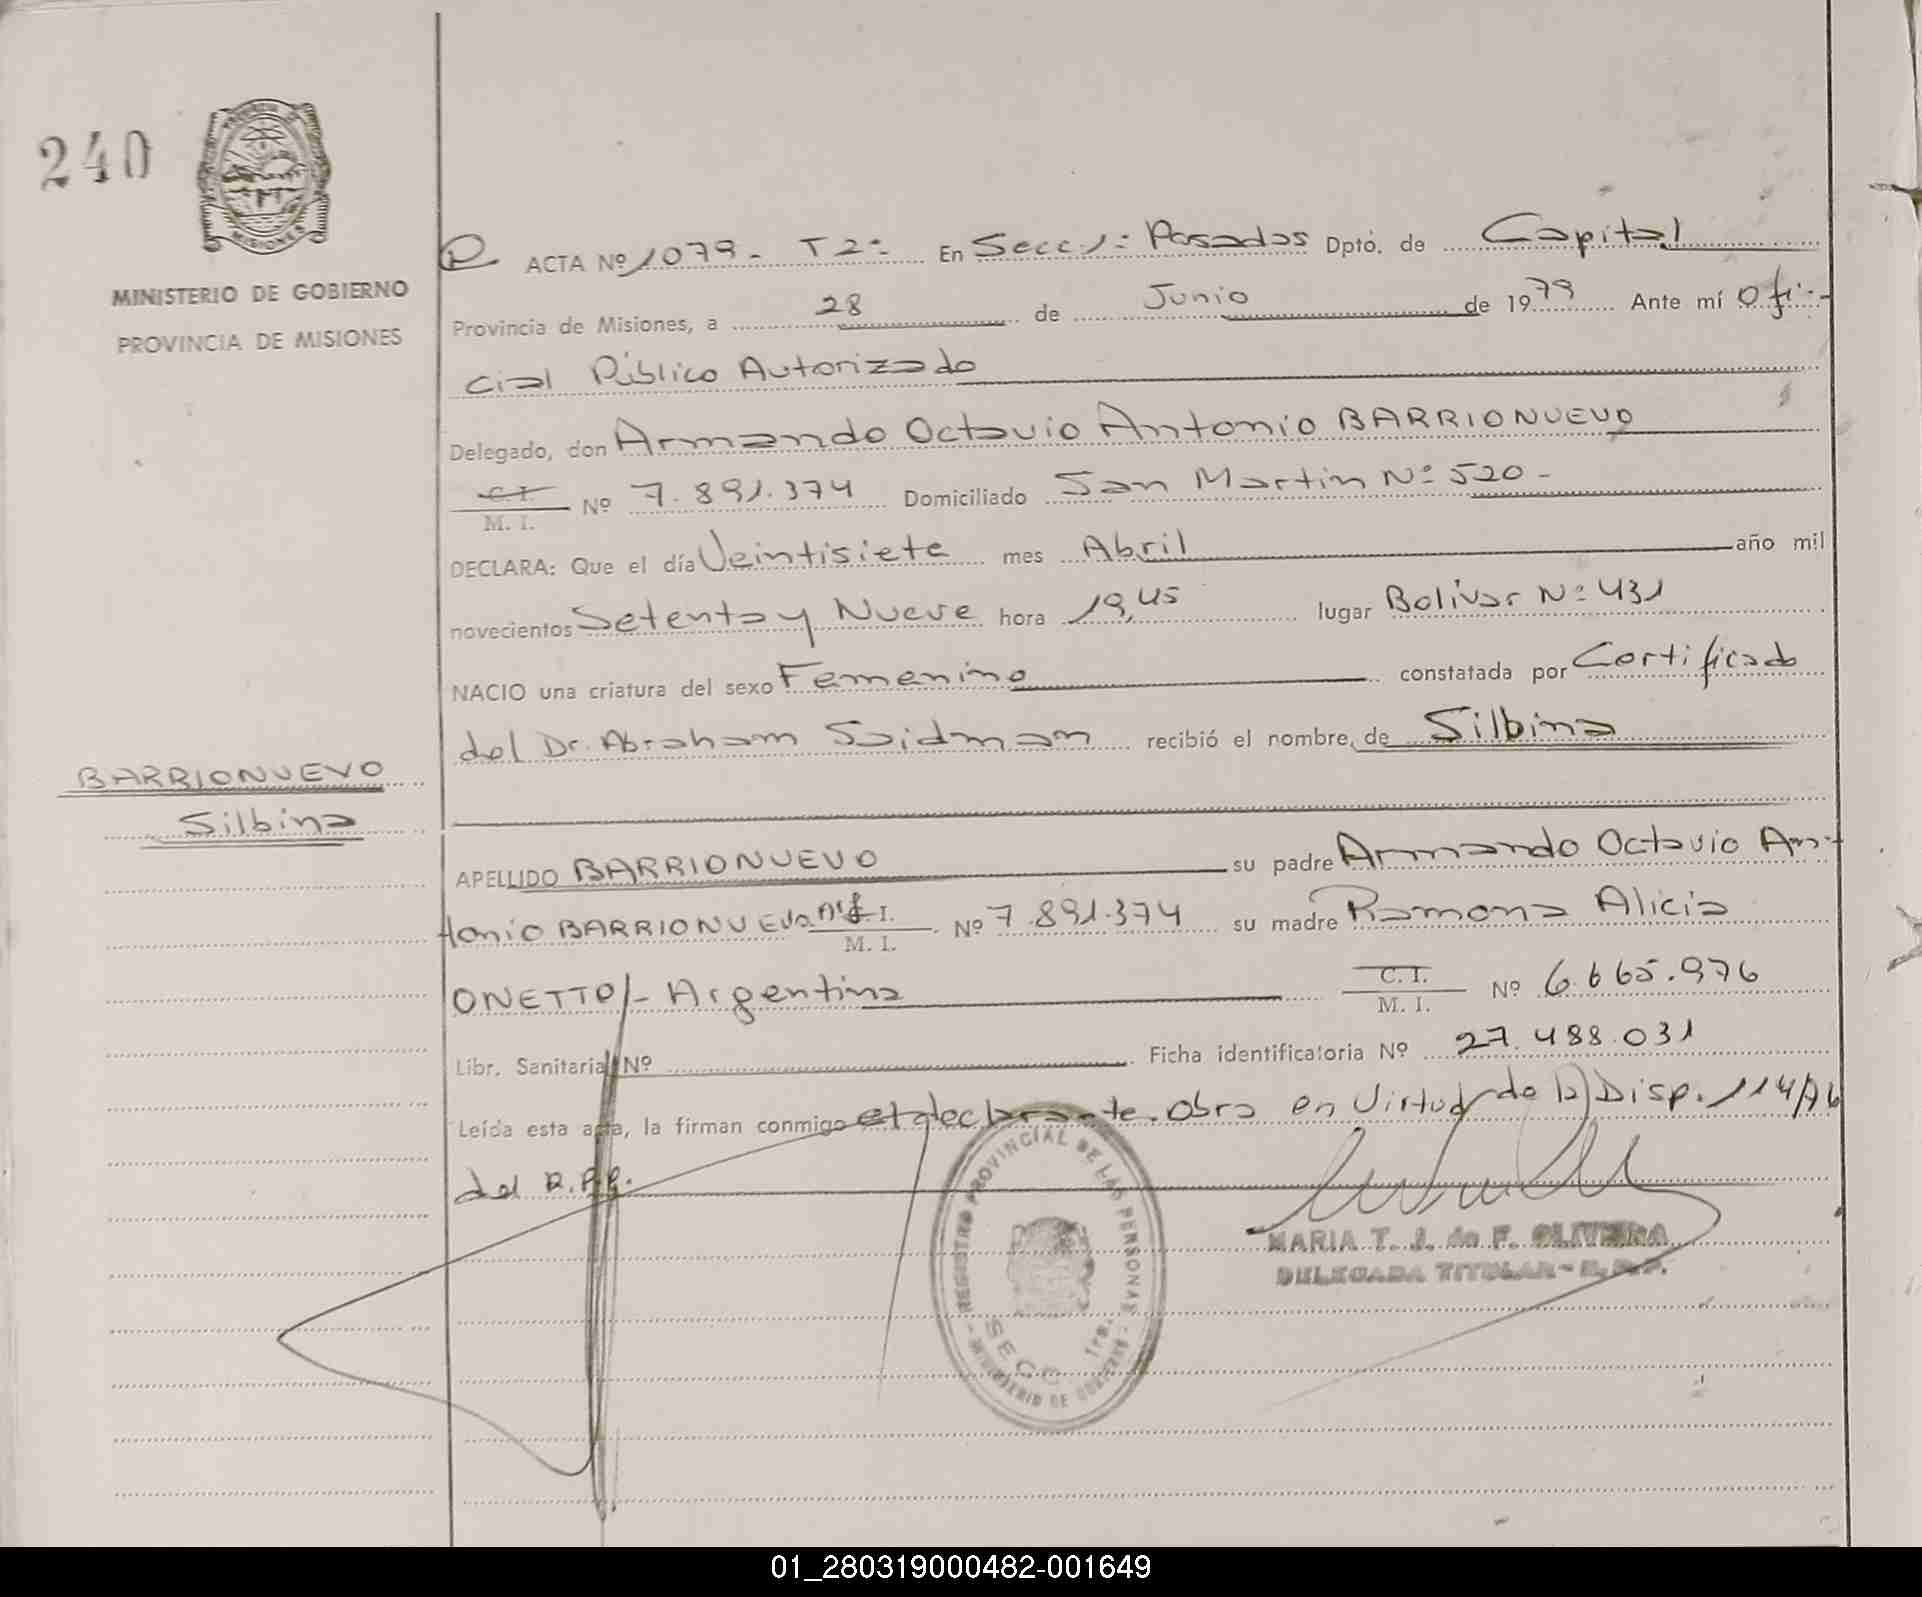 240
PROVINCIA DE
MISIONES
MINISTERIO DE GOBIERNO
PROVINCIA DE MISIONES
BARRIONUEVO
Silbina
ACTA Nº 1079 - T 2º En Secc. 1º Posadas Dptó. de Capital
Provincia de Misiones, a 28 de Junio de 1979 Ante mí Ofi-
cial Público Autorizado
Delegado, don Armando Octavio Antonio BARRIONUEVO
C.I.
M. I. Nº 7.891.374 Domiciliado San Martin Nº 520 -
DECLARA: Que el día Veintisiete mes Abril año mil
novecientos Setenta y Nueve hora 19,45 lugar Bolivar Nº 431
NACIO una criatura del sexo Femenino constatada por Certificado
del Dr. Abraham Saidman recibió el nombre de Silbina
APELLIDO BARRIONUEVO su padre Armando Octavio An-
tonio BARRIONUEVO Arg. C.I.
M. I. Nº 7.891.374 su madre Ramona Alicia
ONETTO/- Argentina C.I.
M. I. Nº 6.665.976
Libr. Sanitaria Nº Ficha identificatoria Nº 27.488.031
Leída esta acta, la firman conmigo el declarante. Obra en Virtud de la Disp. 114/76
del R.P.P.
REGISTRO PROVINCIAL DE LAS PERSONAS
SECC. 1ra.
- MINISTERIO DE GOBIERNO -
MARIA T. J. de F. OLIVEIRA
DELEGADA TITULAR - R. P. P.
01_280319000482-001649